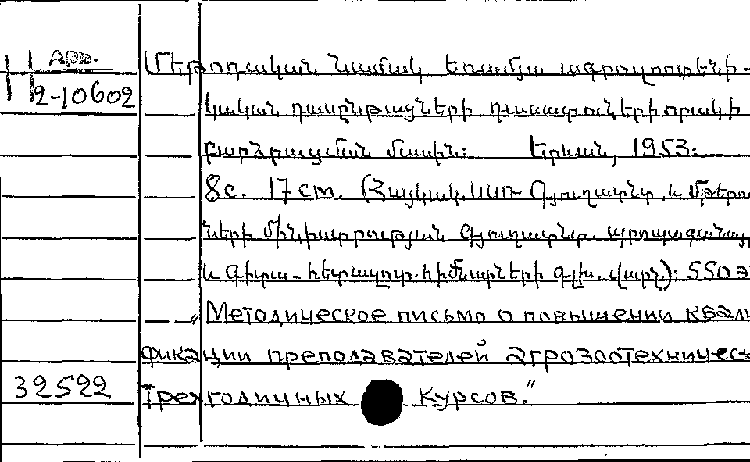 Арм.
2-10602
Մեթոդական նամակ եռամյա ագրոզոոտեխնի-
կական դասընթացների դասատուների որակի
բարձրացման մասին: Երևան, 1953:
8с. 17cm. (Հայկակ. ՍՍՌ Գյուղատնտ. և մթերո
ների մինիստրության Գյուղատնտ. պրոպագանդայ
և Գիտա-հետազոտ. հիմնարկների գլխ. վարչ): 550
„Методическое письмо о повышении квали
фикации преподавателей агрозоотехническ
трехгодичных курсов.“
32522